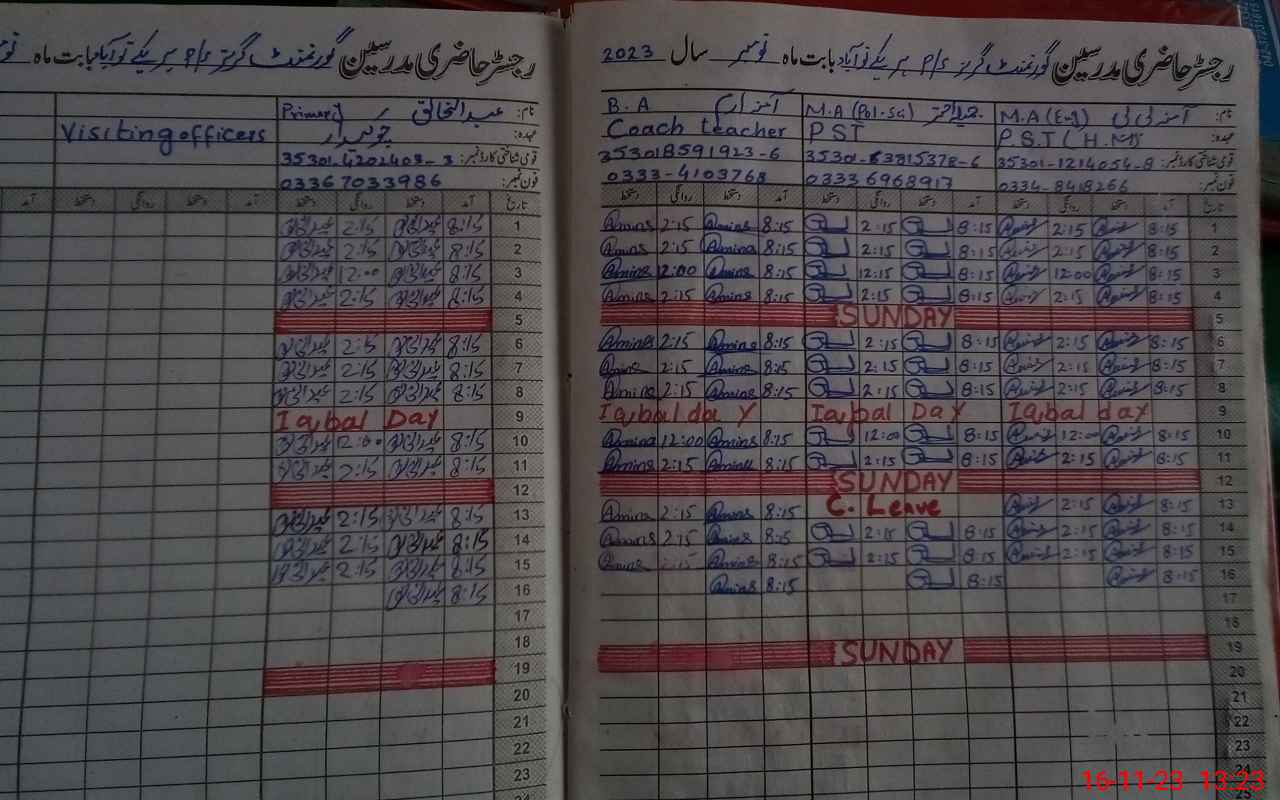 رجسٹر حاضری مدرسین گورنمنٹ گرلز P/S ہریکے نو آباد بابت ماہ نومبر سال 2023
نام: آمنہ بی بی M.A (Eng) M.A (Pol-Sc) B.A
عہدہ: P.S.T (H.M) PST Coach teacher
قومی شناختی کارڈ نمبر: 35301-1214054-8 35301-63815378-6 353018591923-6
فون نمبر: 0334-8418266 03336968917 0333-4103768
تاریخ آمد دستخط روانگی دستخط آمد دستخط روانگی دستخط آمد دستخط روانگی دستخط
1 8:15 2:15 8:15 2:15 8:15 Amina 2:15 Amina
2 8:15 2:15 8:15 2:15 8:15 Amina 2:15 Amina
3 8:15 12:00 8:15 12:15 8:15 Amina 12:00 Amina
4 8:15 2:15 8:15 2:15 8:15 Amina 2:15 Amina
5 SUNDAY
6 8:15 2:15 8:15 2:15 8:15 Amina 2:15 Amina
7 8:15 2:15 8:15 2:15 8:15 Amina 2:15 Amina
8 8:15 2:15 8:15 2:15 8:15 Amina 2:15 Amina
9 Iqbal day Iqbal Day Iqbal day
10 8:15 12:00 8:15 12:00 8:15 Amina 12:00 Amina
11 8:15 2:15 8:15 2:15 8:15 Amina 2:15 Amina
12 SUNDAY
13 8:15 2:15 C. Leave 8:15 Amina 2:15 Amina
14 8:15 2:15 8:15 2:15 8:15 Amina 2:15 Amina
15 8:15 2:15 8:15 2:15 8:15 Amina 2:15 Amina
16 8:15 8:15 8:15 Amina
17
18
19 SUNDAY
20
21
22
23
24
25
رجسٹر حاضری مدرسین گورنمنٹ گرلز P/S ہریکے نو آباد بابت ماہ
نام: عبدالخالق Primary
عہدہ: چوکیدار Visiting officers
قومی شناختی کارڈ نمبر: 35301-4202403-3
فون نمبر: 03367033986
تاریخ آمد دستخط روانگی دستخط آمد دستخط روانگی دستخط آمد
1 8:15 عبدالخالق 2:15 عبدالخالق
2 8:15 عبدالخالق 2:15 عبدالخالق
3 8:15 عبدالخالق 12:00 عبدالخالق
4 8:15 عبدالخالق 2:15 عبدالخالق
5
6 8:15 عبدالخالق 2:15 عبدالخالق
7 8:15 عبدالخالق 2:15 عبدالخالق
8 8:15 عبدالخالق 2:15 عبدالخالق
9 Iqbal Day
10 8:15 عبدالخالق 12:00 عبدالخالق
11 8:15 عبدالخالق 2:15 عبدالخالق
12
13 8:15 عبدالخالق 2:15 عبدالخالق
14 8:15 عبدالخالق 2:15 عبدالخالق
15 8:15 عبدالخالق 2:15 عبدالخالق
16 8:15 عبدالخالق
17
18
19
20
21
22
23
24
16-11-23 13:23